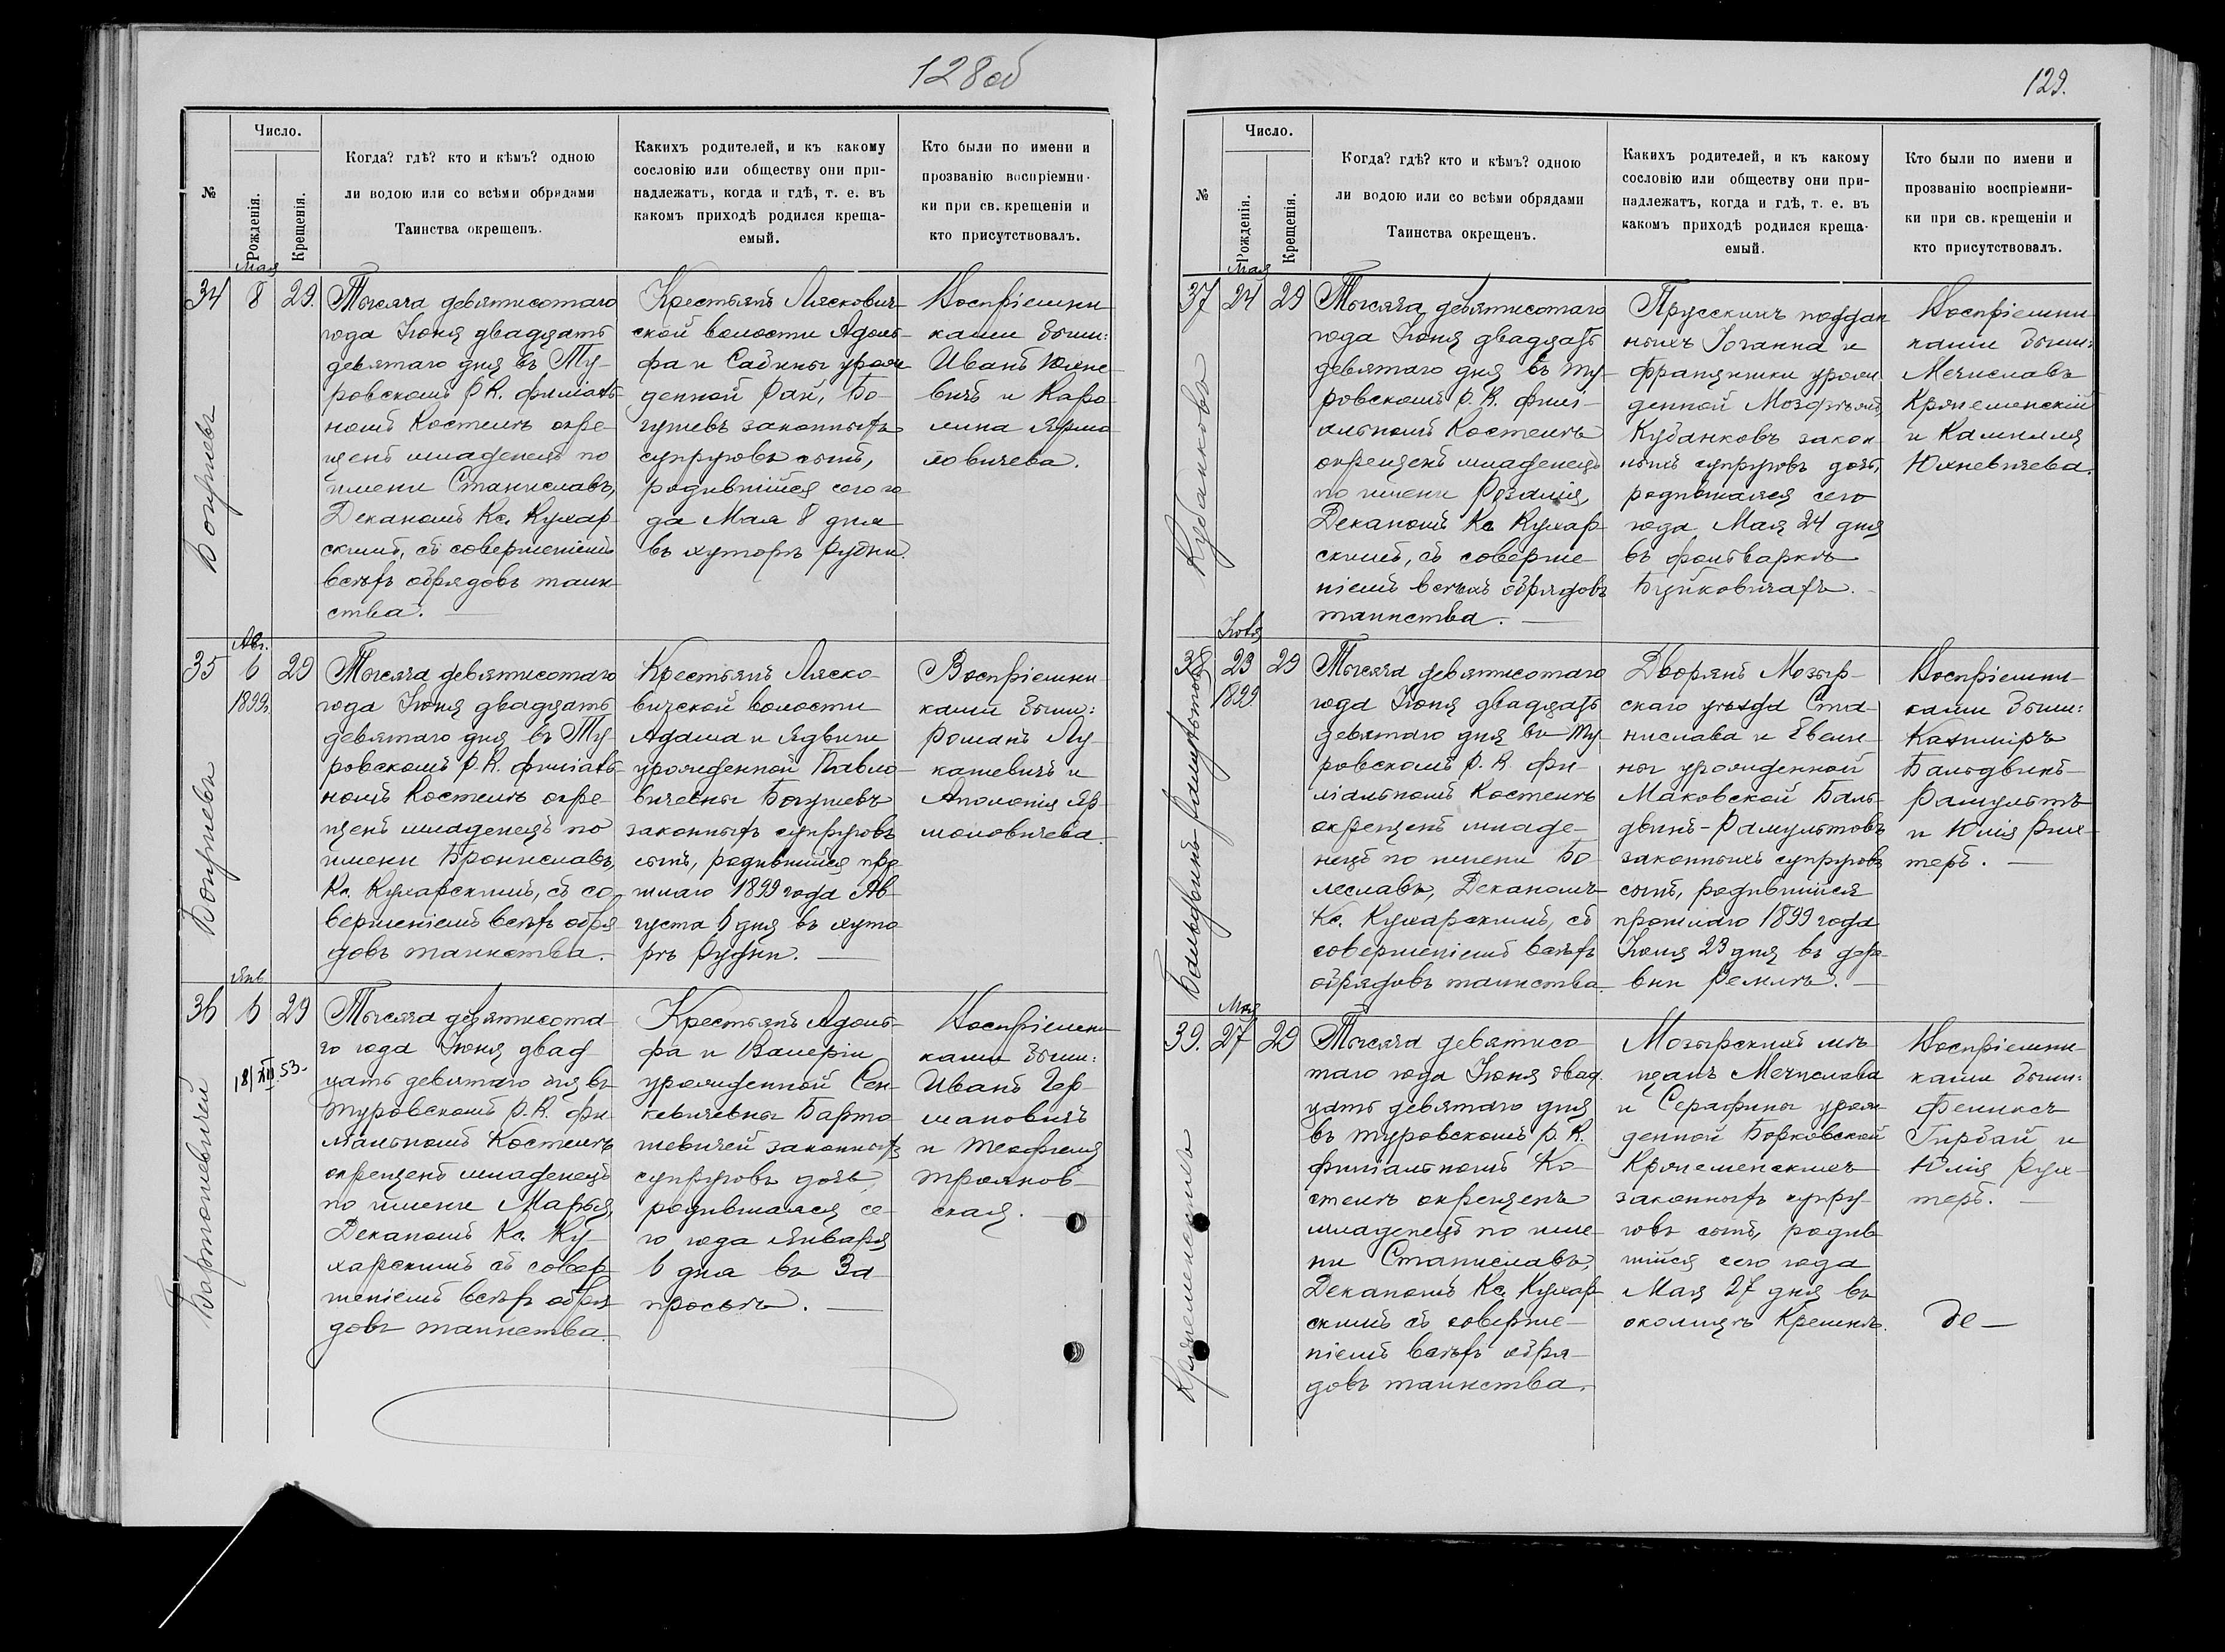 128об
№
Число.
Рожденія.
Крещенія.
Когда? гдѣ? кто и кѣмъ? одною
ли водою или со всѣми обрядами
Таинства окрещенъ.
Какихъ родителей, и къ какому
сословію или обществу они при-
надлежатъ, когда и гдѣ, т. е. въ
какомъ приходѣ родился креща-
емый.
Кто были по имени и
прозванію воспріемни-
ки при св. крещеніи и
кто присутствовалъ.
Мая
34 8 29.
Богушевъ
Тысяча девятисотаго
года Іюня двадцать
девятаго дня въ Ту-
ровскомъ Р.К. филіаль-
номъ Костелѣ окре-
щенъ младенецъ по
имени Станиславъ,
Деканомъ Кс. Кухар-
скимъ, съ совершеніемъ
всѣхъ обрядовъ таин-
ства.
Крестьянъ Лясковичъ-
ской волости Адоль-
фа и Сабины урож-
денной Рай, Бо-
гушевъ законныхъ
супруговъ сынъ,
родившійся сего го-
да Мая 8 дня
въ хуторѣ Рудни.
Воспріемни-
ками были:
Иванъ Юхне-
вичъ и Каро-
лина Ярмо-
ловичева.
Авг.
35 6 29
1899г.
Богушевъ
Тысяча девятисотаго
года Іюня двадцать
девятаго дня въ Ту-
ровскомъ Р.К. филіаль-
номъ Костелѣ окре-
щенъ младенецъ по
имени Брониславъ,
Кс. Кухарскимъ, съ со-
вершеніемъ всѣхъ обря-
довъ таинства.
Крестьянъ Ляско-
вичской волости
Адама и Ядвиги
урожденной Павло-
вичевны Богушевъ
законныхъ супруговъ
сынъ, родившійся про-
шлаго 1899 года Ав-
густа 6 дня въ хуто-
рѣ Рудни.
Воспріемни-
ками были:
Романъ Лу-
кашевичъ и
Аполонія Яр-
моловичева.
Янв.
36 6 29
18/XII 53.
Бартошевичей
Тысяча девятисота-
го года Іюня двад-
цать девятаго дня въ
Туровскомъ Р.К. фи-
ліальномъ Костелѣ
окрещенъ младенецъ
по имени Марья,
Деканомъ Кс. Ку-
харскимъ съ совер-
шеніемъ всѣхъ обря-
довъ таинства.
Крестьянъ Адоль-
фа и Валеріи
урожденной Сен-
кевичевны Барто-
шевичей законныхъ
супруговъ дочь,
родившаяся се-
го года Января
6 дня въ За-
просьѣ.
Воспріемни-
ками были:
Иванъ Гер-
мановичъ
и Теофиля
Трояков-
ская.
129.
№
Число.
Рожденія.
Крещенія.
Когда? гдѣ? кто и кѣмъ? одною
ли водою или со всѣми обрядами
Таинства окрещенъ.
Какихъ родителей, и къ какому
сословію или обществу они при-
надлежатъ, когда и гдѣ, т. е. въ
какомъ приходѣ родился креща-
емый.
Кто были по имени и
прозванію воспріемни-
ки при св. крещеніи и
кто присутствовалъ.
Мая
37 24 29
Кубанковъ
Тысяча девятисотаго
года Іюня двадцать
девятаго дня въ Ту-
ровскомъ Р.К. филі-
альномъ Костелѣ
окрещенъ младенецъ
по имени Розалія,
Деканомъ Кс Кухар-
скимъ, съ соверше-
ніемъ всѣхъ обрядовъ
таинства.
Прусскихъ поддан-
ныхъ Іоганна и
Францишки урож-
денной
Кубанковъ закон-
ныхъ супруговъ дочь,
родившаяся сего
года Мая 24 дня
въ фольваркѣ
Буйковичахъ.
Воспріемни-
ками были:
Мечиславъ
Кржеменскій
и Камилля
Юхневичева.
Іюня
38 23 29
1899
Бальдвинъ-Рамультовъ
Тысяча девятисотаго
года Іюня двадцать
девятаго дня въ Ту-
ровскомъ Р.К. фи-
ліальномъ Костелѣ
окрещенъ младе-
нецъ по имени Бо-
леславъ, Деканомъ
Кс. Кухарскимъ, съ
совершеніемъ всѣхъ
обрядовъ таинства.
Дворянъ Мозыр-
скаго уѣзда Ста-
нислава и Евели-
ны урожденной
Маковской Баль-
двинъ-Рамультовъ
законныхъ супруговъ
сынъ, родившійся
прошлаго 1899 года
Іюня 23 дня въ дере-
вни Ремлѣ.
Воспріемни-
ками были:
Казимиръ
Бальдвинъ-
Рамультъ
и Юлія Рих-
теръ.
Мая
39. 27 29
Кржеменскихъ
Тысяча девятисо-
таго года Іюня двад-
цать девятаго дня
въ Туровскомъ Р.К.
филіальномъ Ко-
стелѣ окрещенъ
младенецъ по име-
ни Станиславъ,
Деканомъ Кс. Кухар-
скимъ съ соверше-
ніемъ всѣхъ обря-
довъ таинства.
Мозырскихъ мѣ-
щанъ Мечислава
и Серафины урож-
денной Борковской
Кржеменскихъ
законныхъ супру-
говъ сынъ, родив-
шійся сего года
Мая 27 дня въ
околицѣ Кремнѣ.
Воспріемни-
ками были:
Феликсъ
Гирбай и
Юлія Рих-
теръ.